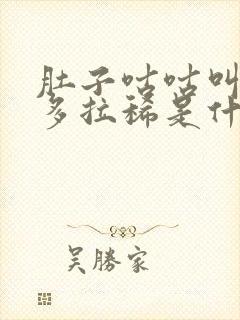 肚子咕咕叫
多拉稀是什
吴勝家